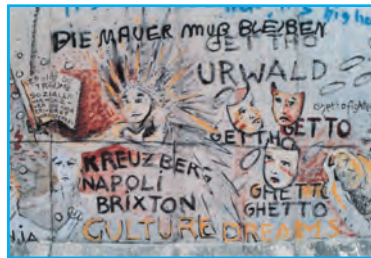 DIE MAUER MUß BLEIBEN
GETTHO
URWALD
TRÄUME
SOZIALE
GETTHO
GETTO
KREUZBERG
NAPOLI
BRIXTON
GHETTO
GHETTO
CULTURE DREAMS